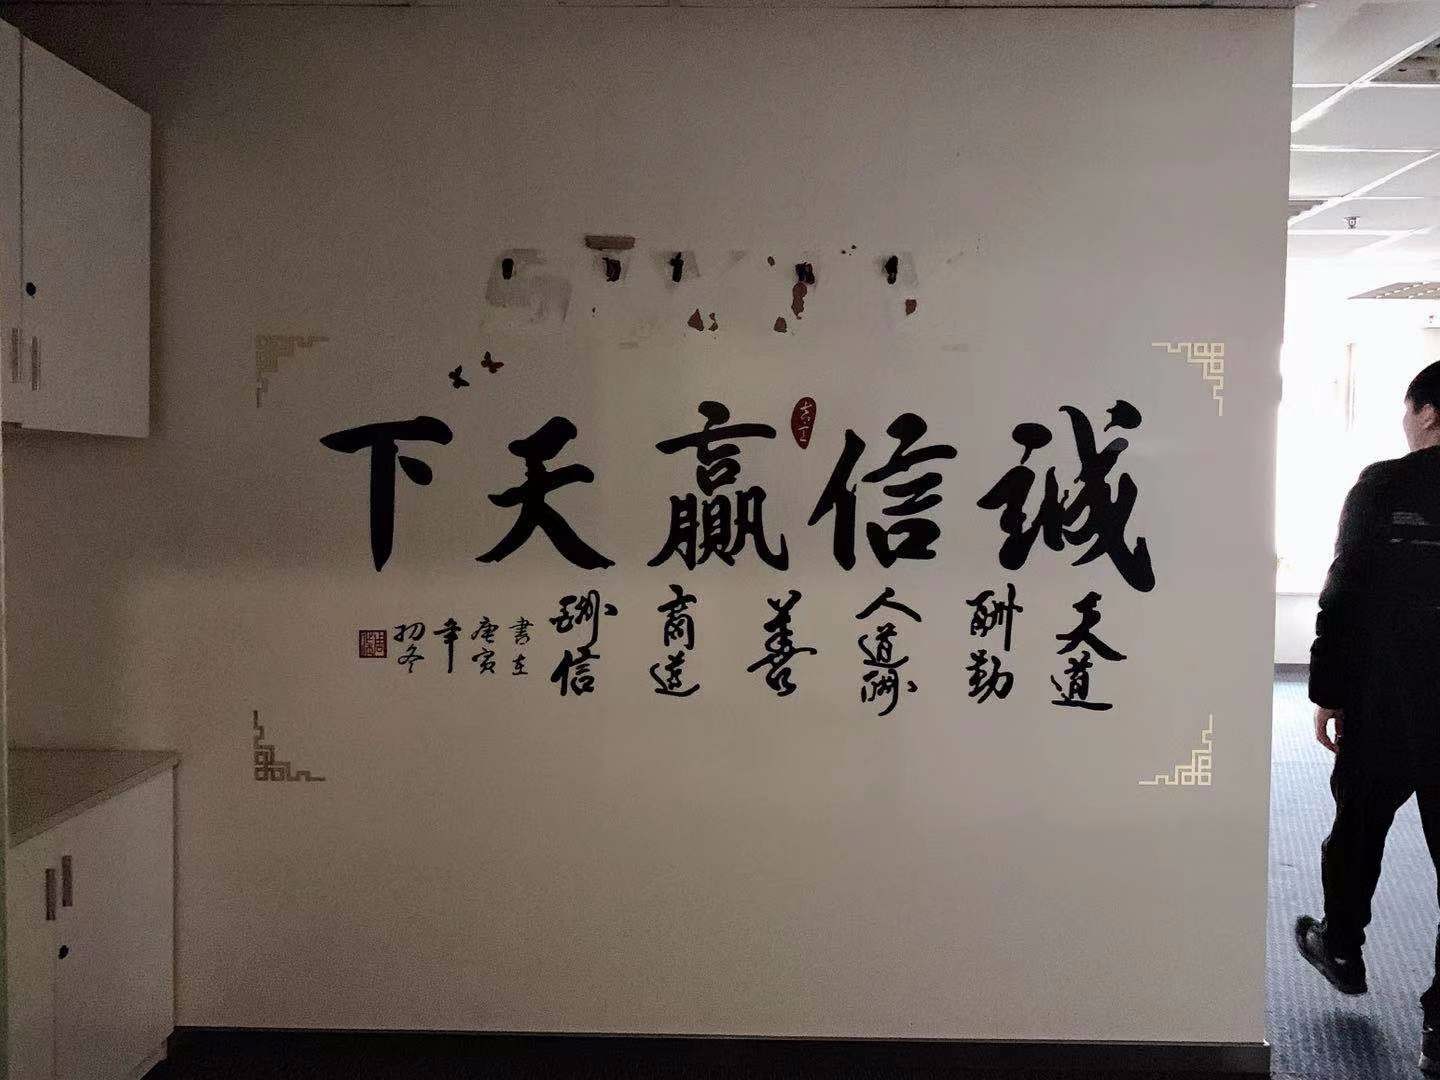 誠信贏天下
天道
酬勤
人道酬
善
商道
酬信
書在
庚寅
年
初冬